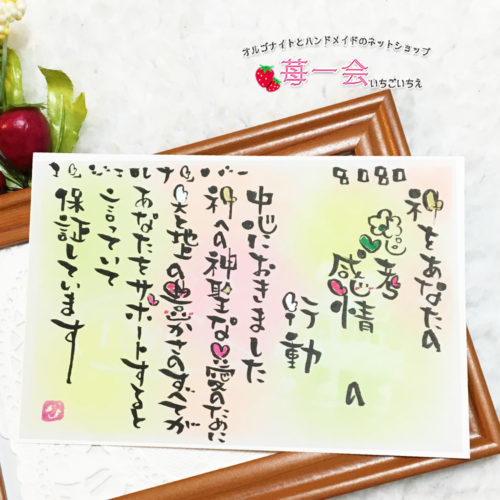 オルゴナイトとハンドメイドのネットショップ
苺一会いちごいちえ
エンジェルナンバー
8080
神をあなたの
思考
感情の
行動
中心におきました
神への神聖な愛のために
天と地上の豊かさのすべてが
あなたをサポートすると
言っていて
保証しています